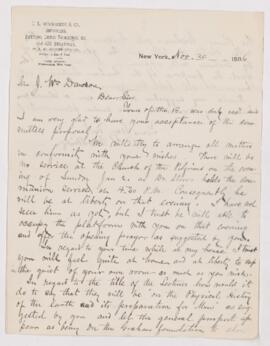 New York, Nov. 30 1886
Sir J. Wm Dawson,
Dear Sir
Yours of the
I am very glad to have your acceptance of the com-
mittee's proposal.
I will try to arrange all matters
in conformity with your wishes. There will be
no service in the Church of the Pilgrims on the even-
ing of Sunday Jan 2. as Dr Storrs holds the com-
munion service at 4.30 P.M. Consequently he
will be at liberty on that evening. I have not
seen him as yet, but I trust he will be able to
occupy the platform with you on that evening
and offer the opening prayer as suggested by you.
In regard to your time while at my house, I trust
you will feel quite at home, and at liberty to
the quiet of your own room as much as you wish.
In regard to the title of the Lectures how would it
do to say that they will be on the Physical History
of the Earth and its preparation for Man as sug-
gested by you and let the general prospect ap-
pear as being on the Graham foundation